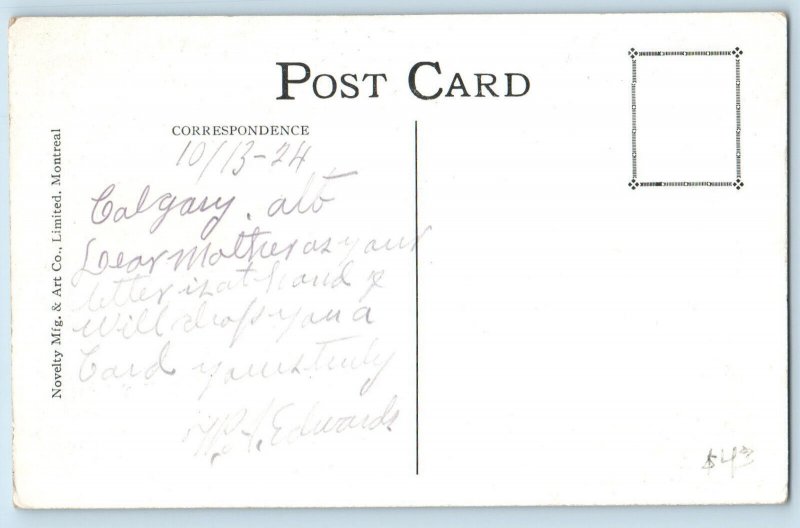 POST CARD
CORRESPONDENCE
10/13-24
Calgary. alb
Dear Mother as your
letter is at hand I
will drop you a
Card yours truly
Edwards
Novelty Mfg. & Art Co., Limited. Montreal